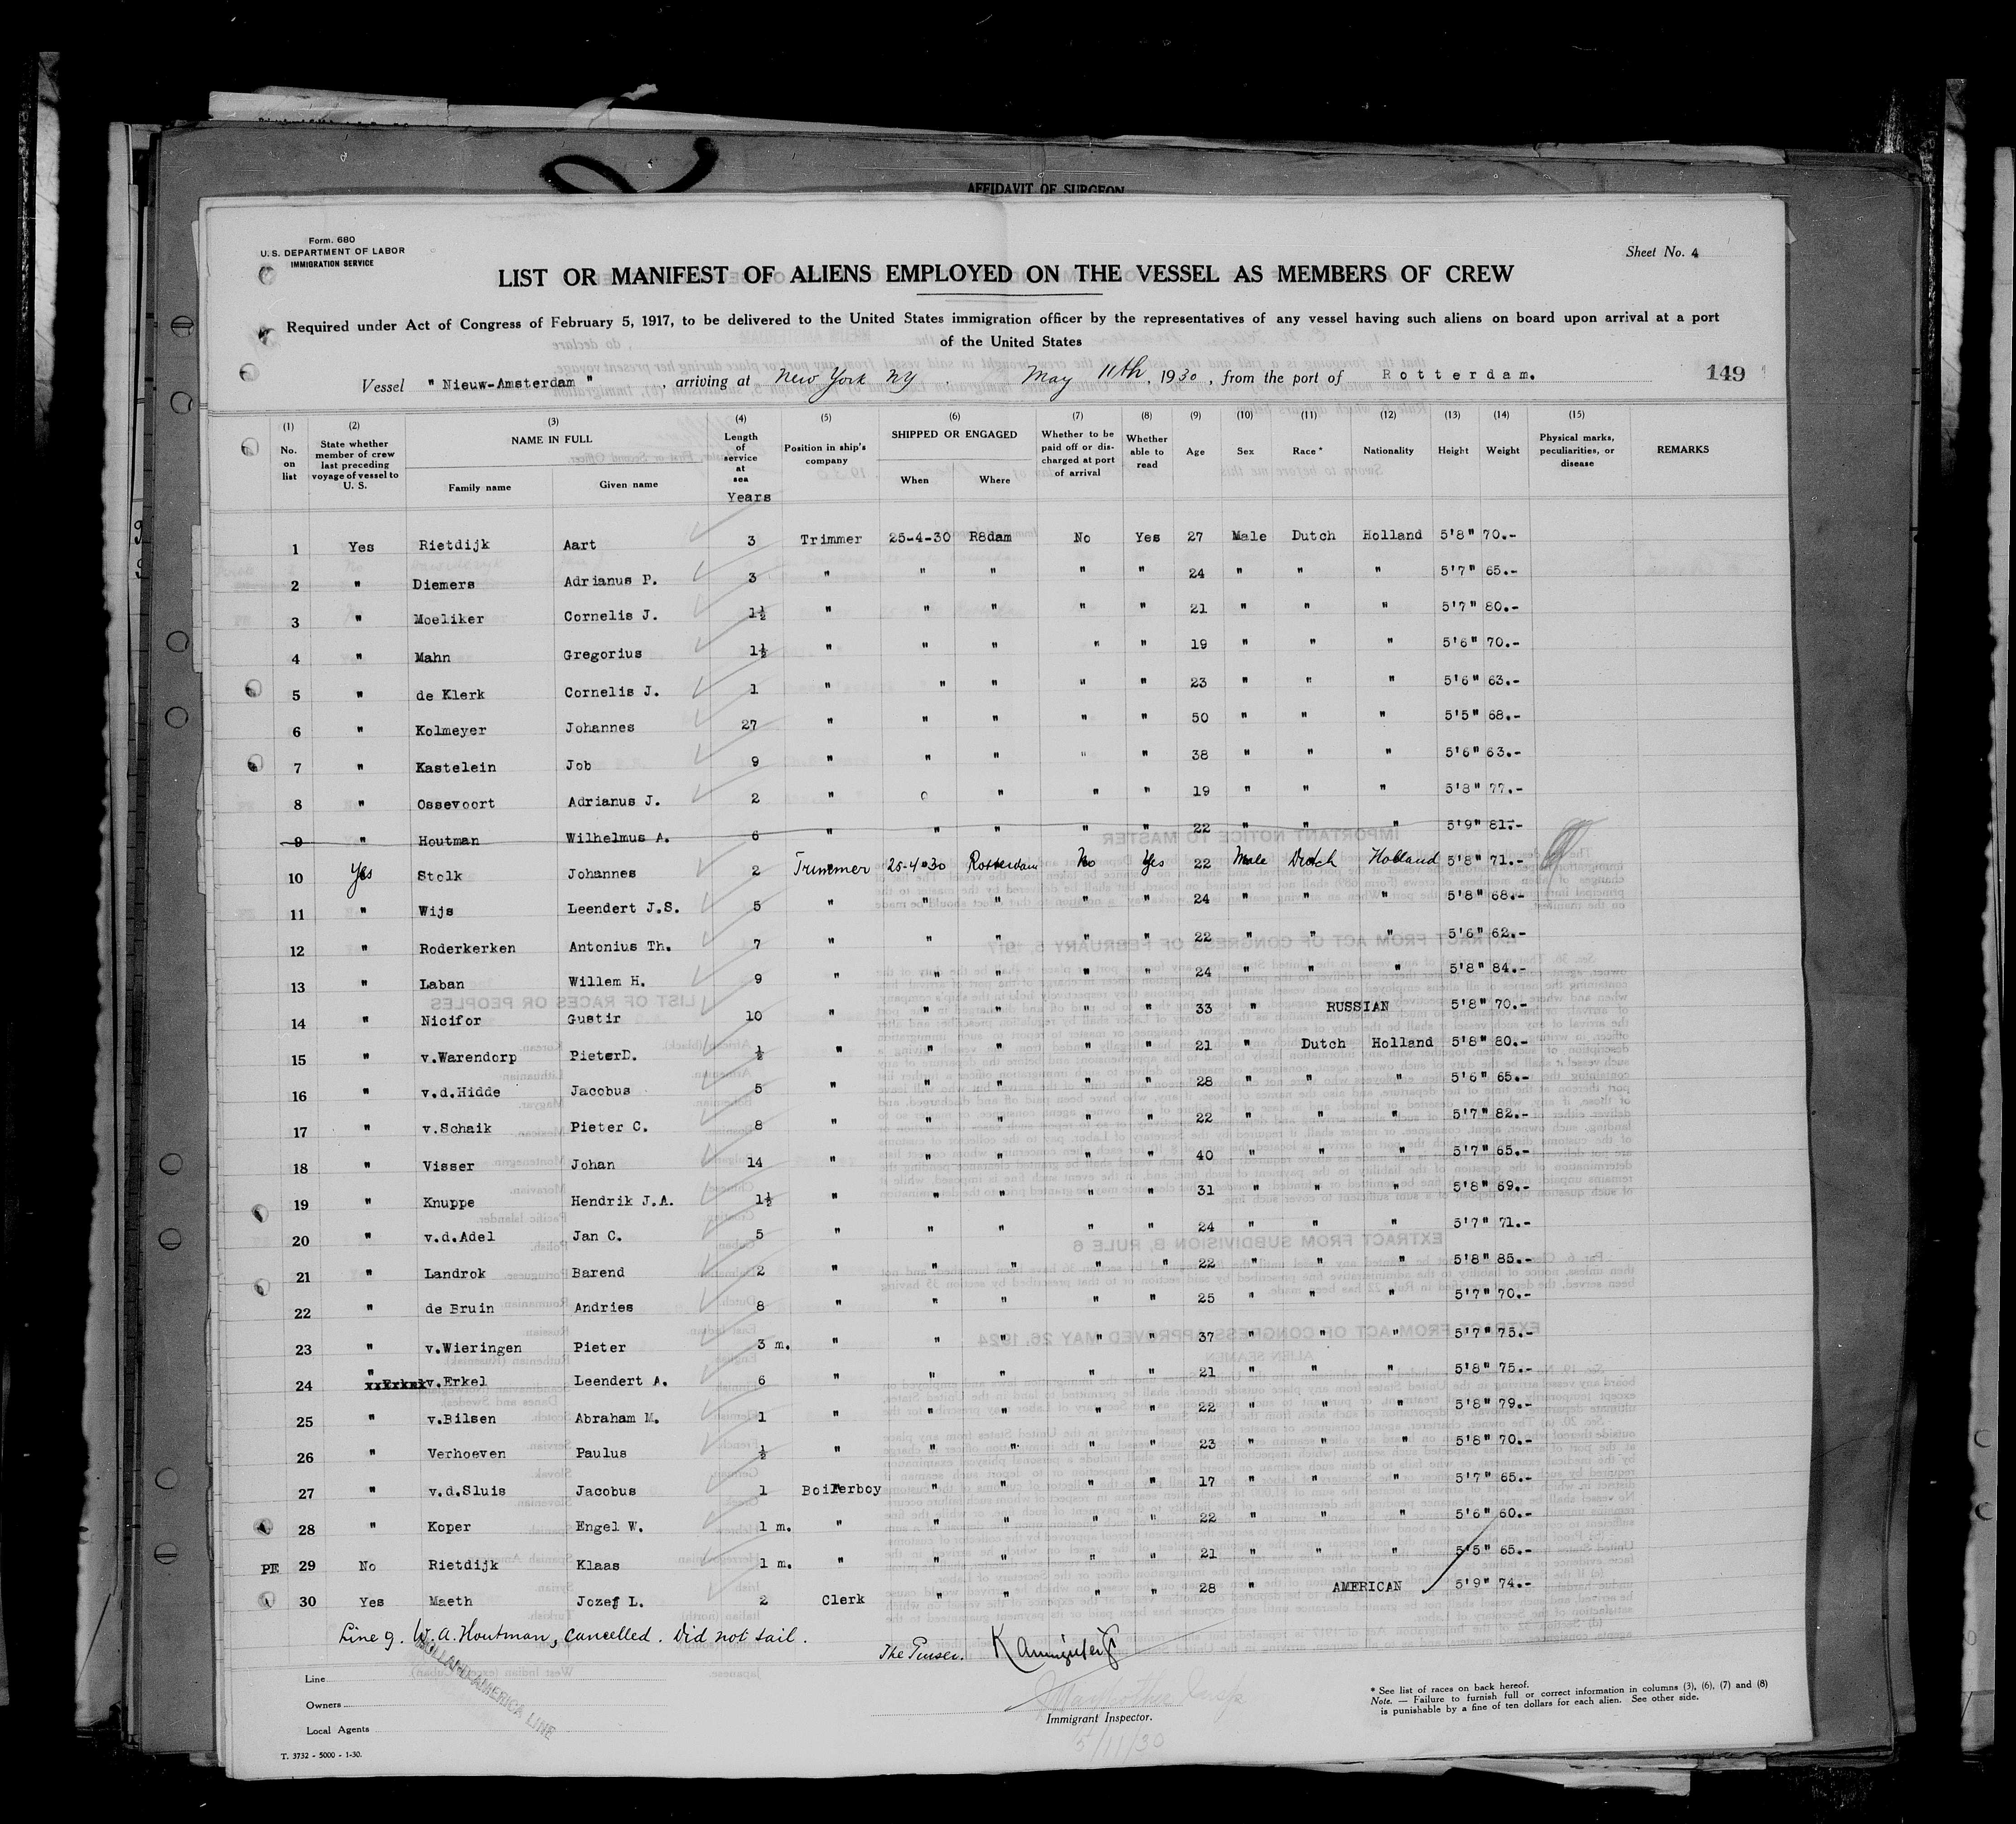 AFFIDAVIT OF SURGEON
Form. 680
U. S. DEPARTMENT OF LABOR
IMMIGRATION SERVICE
Sheet No. 4
LIST OR MANIFEST OF ALIENS EMPLOYED ON THE VESSEL AS MEMBERS OF CREW
Required under Act of Congress of February 5, 1917, to be delivered to the United States immigration officer by the representatives of any vessel having such aliens on board upon arrival at a port
of the United States
Vessel " Nieuw-Amsterdam " , arriving at New York NY. May 11th, 1930, from the port of Rotterdam. 149
(1) (2) (3) (4) (5) (6) (7) (8) (9) (10) (11) (12) (13) (14) (15)
No. on list State whether member of crew last preceding voyage of vessel to U. S. NAME IN FULL Family name Given name Length of service at sea Years Position in ship's company SHIPPED OR ENGAGED When Where Whether to be paid off or discharged at port of arrival Whether able to read Age Sex Race * Nationality Height Weight Physical marks, peculiarities, or disease REMARKS
1 Yes Rietdijk Aart 3 Trimmer 25-4-30 R8dam No Yes 27 Male Dutch Holland 5'8" 70.-
2 " Diemers Adrianus P. 3 " " " " " 24 " " " 5'7" 65.-
3 " Moeliker Cornelis J. 1½ " " " " " 21 " " " 5'7" 80.-
4 " Mahn Gregorius 1½ " " " " " 19 " " " 5'6" 70.-
5 " de Klerk Cornelis J. 1 " " " " " 23 " " " 5'6" 63.-
6 " Kolmeyer Johannes 27 " " " " " 50 " " " 5'5" 68.-
7 " Kastelein Job 9 " " " " " 38 " " " 5'6" 63.-
8 " Ossevoort Adrianus J. 2 " " " " " 19 " " " 5'8" 77.-
9 " Houtman Wilhelmus A. 6 " " " " " 22 " " " 5'9" 81.-
10 Yes Stolk Johannes 2 Trimmer 25-4-30 Rotterdam No Yes 22 Male Dutch Holland 5'8" 71.-
11 " Wijs Leendert J.S. 5 " " " " " 24 " " " 5'8" 68.-
12 " Roderkerken Antonius Th. 7 " " " " " 22 " " " 5'6" 62.-
13 " Laban Willem H. 9 " " " " " 24 " " " 5'8" 84.-
14 " Nicifor Gustir 10 " " " " " 33 " RUSSIAN 5'8" 70.-
15 " v.Warendorp PieterD. ½ " " " " " 21 " Dutch Holland 5'8" 80.-
16 " v.d.Hidde Jacobus 5 " " " " " 28 " " " 5'6" 65.-
17 " v.Schaik Pieter C. 8 " " " " " 22 " " " 5'7" 82.-
18 " Visser Johan 14 " " " " " 40 " " " 5'7" 65.-
19 " Knuppe Hendrik J.A. 1½ " " " " " 31 " " " 5'8" 69.-
20 " v.d.Adel Jan C. 5 " " " " " 24 " " " 5'7" 71.-
21 " Landrok Barend 2 " " " " " 22 " " " 5'8" 85.-
22 " de Bruin Andries 8 " " " " " 25 " " " 5'7" 70.-
23 " v.Wieringen Pieter 3 m. " " " " " 37 " " " 5'7" 75.-
24 " v.Erkel Leendert A. 6 " " " " " 21 " " " 5'8" 75.-
25 " v.Bilsen Abraham M. 1 " " " " " 22 " " " 5'8" 79.-
26 " Verhoeven Paulus ½ " " " " " 23 " " " 5'8" 70.-
27 " v.d.Sluis Jacobus 1 Boilerboy " " " " 17 " " " 5'7" 65.-
28 " Koper Engel W. 1 m. " " " " " 22 " " " 5'6" 60.-
PE 29 No Rietdijk Klaas 1 m. " " " " " 21 " " " 5'5" 65.-
30 Yes Maeth Jozef L. 2 Clerk " " " " 28 " AMERICAN 5'9" 74.-
Line 9. W.A. Houtman, cancelled. Did not sail.
The Purser.
HOLLAND-AMERICA LINE
Line
Owners
Local Agents
Immigrant Inspector.
5/11/30
* See list of races on back hereof.
Note. — Failure to furnish full or correct information in columns (3), (6), (7) and (8)
is punishable by a fine of ten dollars for each alien. See other side.
T. 3732 - 5000 - 1-30.